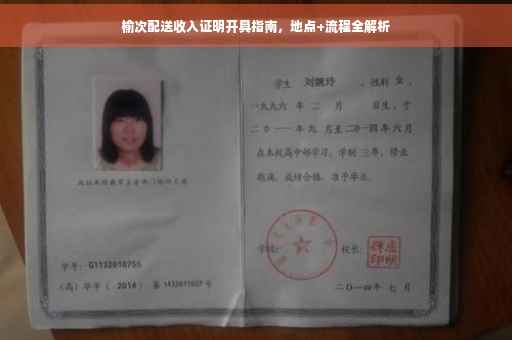 榆次配送收入证明开具指南，地点+流程全解析
学生 刘婉玲 ，性别 女 ，
一九九六 年 二 月 日生，于
二0一一年九 月至二0一四年六月
在本校高中部学习，学制 三年，修业
期满，成绩合格，准予毕业。
学号：G1132010755
校长：
（高）毕字（ 2014 ）第 1432011027 号
二〇一四年 七 月